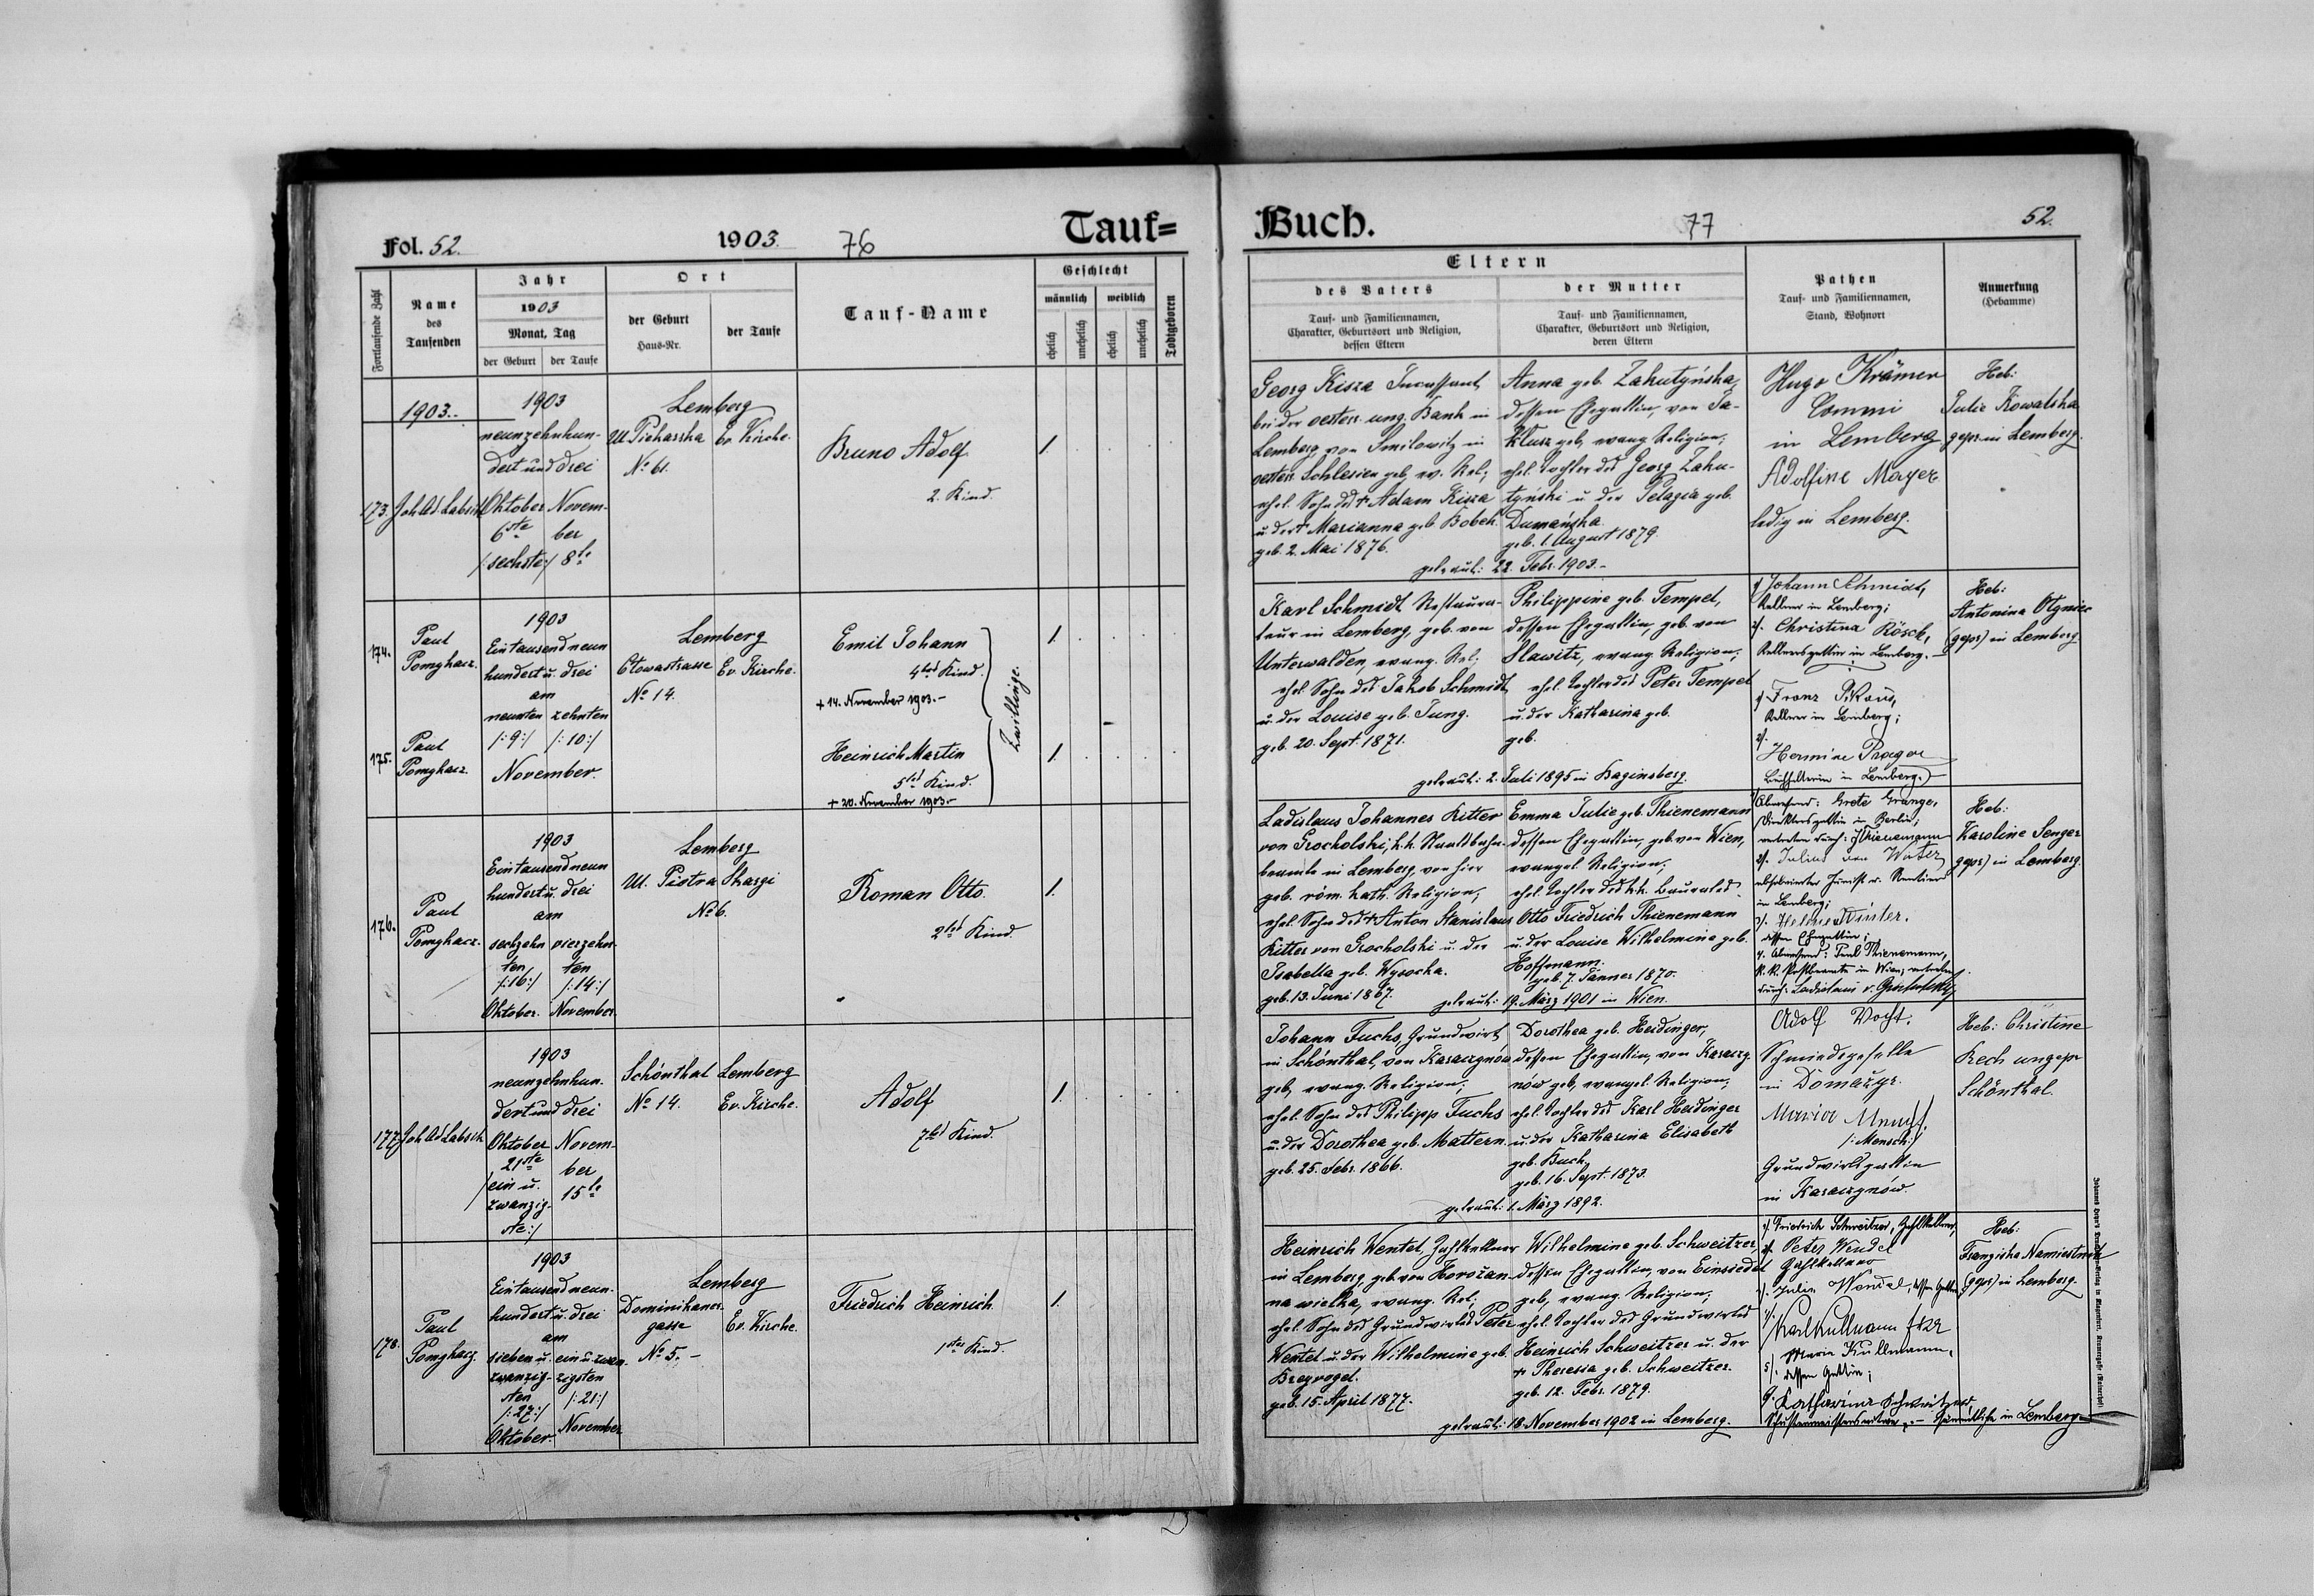 Tauf=
Buch.
Fol. 52.
1903.
76
77
52.
Fortlaufende Zahl
Name
des
Taufenden
Jahr
1903
Monat, Tag
der Geburt
der Taufe
Ort
der Geburt
Haus-Nr.
der Taufe
Tauf-Name
Geschlecht
männlich
weiblich
ehelich
unehelich
ehelich
unehelich
Todtgeboren
Eltern
des Vaters
Tauf- und Familiennamen,
Charakter, Geburtsort und Religion,
dessen Eltern
der Mutter
Tauf- und Familiennamen,
Charakter, Geburtsort und Religion,
deren Eltern
Pathen
Tauf- und Familiennamen,
Stand, Wohnort
Anmerkung
(Hebamme)
1903.-
173.
Joh. Ad. Labsik
1903
neunzehnhun-
dert und drei
Oktober
6te
/:sechste:/
Novem-
ber
8te
Lemberg
Ul. Piekarska
No 61.
Ev. Kirche.
Bruno Adolf
2. Kind.
1.
Georg Kisza Incassant
bei der oesterr. ung. Bank in
Lemberg, von Smilowitz in
oesterr. Schlesien geb, ev. Rel;
ehel. Sohn des + Adam Kisza
u. der + Marianna geb Bobek.
geb. 2. Mai 1876.
Anna geb. Zahutyńska,
dessen Ehegattin, von Ka-
klusz geb, evang Religion;
ehel. Tochter des Georg Zahu-
tyński u. der Pelagia geb.
Dumańska.
geb. 1. August 1879.
getraut: 22. Febr. 1903.-
Hugo Krämer
Commi
in Lemberg
Adolfine Mayer
ledig in Lemberg.
Heb:
Julie Kowalska
gepr. in Lemberg.
174.
Paul
Pomykacz.
175.
Paul
Pomykacz.
1903
Ein tausend neun
hundert u. drei
am
neunten
/:9:/
zehnten
/:10:/
November.
Lemberg
No 14.
Ev. Kirche.
Emil Johann
4tes Kind.
+ 14. November 1903.-
Heinrich Martin
5tes Kind.
+ 20. November 1903.-
Zwillinge.
1.
1.
Karl Schmidt Restaura-
teur in Lemberg, geb. von
Unterwalden, evang. Rel;
ehel. Sohn des Jakob Schmidt
u. der Louise geb. Jung.
geb. 20. Sept. 1871.
Philippine geb. Tempel,
dessen Ehegattin, geb. von
Slawitz, evang Religion;
ehel. Tochter des Peter Tempel
u. der Katharina geb.
geb.
getraut: 2. Juli 1895 in Baginsberg.
1/ Johann Schmidt,
Kellner in Lemberg;
2/. Christina Rösch,
Kellnersgattin in Lemberg.-
1/ Franz
Kellner in Lemberg;
2/.
Hermine Prager
in Lemberg.)
Heb:
Antonina Olgniec
(gepr) in Lemberg
176.
Paul
Pomykacz.
1903
Ein tausend neun
hundert u. drei
am
sechzehn
ten
/:16:/
Oktober.
vierzehn
ten
/:14:/
November.
Lemberg
Ul. Piotra Skargi
No 6.
Roman Otto.
2tes Kind.
1.
Ladislaus Johannes Ritter
von Grocholski, k.k. Staatsbahn-
beamte in Lemberg, von hier
geb. röm. kath. Religion;
ehel. Sohn des + Anton Stanislaus
Ritter von Grocholski u. der
Isabella geb. Wysocka.
geb. 13. Juni 1867.
Emma Julie geb. Thienemann
dessen Ehegattin, geb von Wien,
evangel. Religion;
ehel. Tochter des k.k. Baurates
Otto Friedrich Thienemann
u. der Louise Wilhelmine geb.
Hoffmann.
geb. 7. Jänner 1870.
getraut: 19. März 1901 in Wien.
Abwesend: Grete
in Berlin;
vertreten durch: Thienemann
2/. Julius von
in Lemberg;
dessen Ehegattin;
4. Abwesend: Paul Thienemann,
k. k. Postbeamte in Wien, vertreten
durch: Ladislaus v. Grocholski
Heb:
Karoline Senger
gepr.) in Lemberg.
177.
Joh. Ad Labsik
1903
neunzehnhun.
dert und drei
Oktober
21ste
/ein u.
zwanzig-
ste:/
Novem-
ber
15te
Schönthal
No 14.
Lemberg
Ev. Kirche.
Adolf
7tes Kind.
1.
Johann Fuchs, Grundwirt
in Schönthal, von Karaczynów
geb, evang. Religion;
ehel. Sohn des Philipp Fuchs
u. der Dorothea geb. Mattern.
geb. 25. Febr. 1866.
Dorothea geb. Heidinger,
dessen Ehegattin, von Karaczy
nów geb, evangel. Religion;
ehel. Tochter des Karl Heidinger
u. der Katharina Elisabeth
geb. Buch.
geb. 16. Sept. 1873.
getraut: 1. März 1892.
Adolf Vogt.
Schmiedgeselle
in Domażyr.
Maria
/:Mensch:/
Grundwirtsgattin
in Karaczynów.
Heb: Christine
Rech ungepr
Schönthal.
178.
Paul
Pomykacz.
1903
Ein tausend neun.
hundert u. drei
am
sieben u.
zwanzig-
sten
/:27:/
Oktober.
ein u. zwan.
zigsten
/:21:/
November
Lemberg
Dominikaner.
gasse
No 5.-
Ev. Kirche.
Friedrich Heinrich
1stes Kind.
1.
Heinrich Wentel, Zahlkellner
in Lemberg, geb. von Horożan-
na wielka, evang. Rel;
ehel. Sohn des Grundwirtes Peter
Wentel u. der Wilhelmine geb.
Breyvogel.
geb. 15. April 1877.
Wilhelmine geb. Schweitzer,
dessen Ehegattin, von Einsiedel
geb, evang. Religion;
ehel. Tochter des Grundwirtes
Heinrich Schweitzer u. der
+ Theresia geb. Schweitzer.
geb. 12. Febr. 1879.
getraut: 18. November 1902 in Lemberg.
1/. Friedrich Schweitzer, Zahlkellner,
2/. Peter Wendel
Zahlkellner
3/. Julia Wendel, dessen Gattin
4/.
Karl Kullmann
Maria Kullmann,
5/. dessen Gattin;
6/. Katharina Schweitzer,
Schustermeisterswitwe.- Sämmtliche in Lemberg.
Heb:
(gepr) in Lemberg.